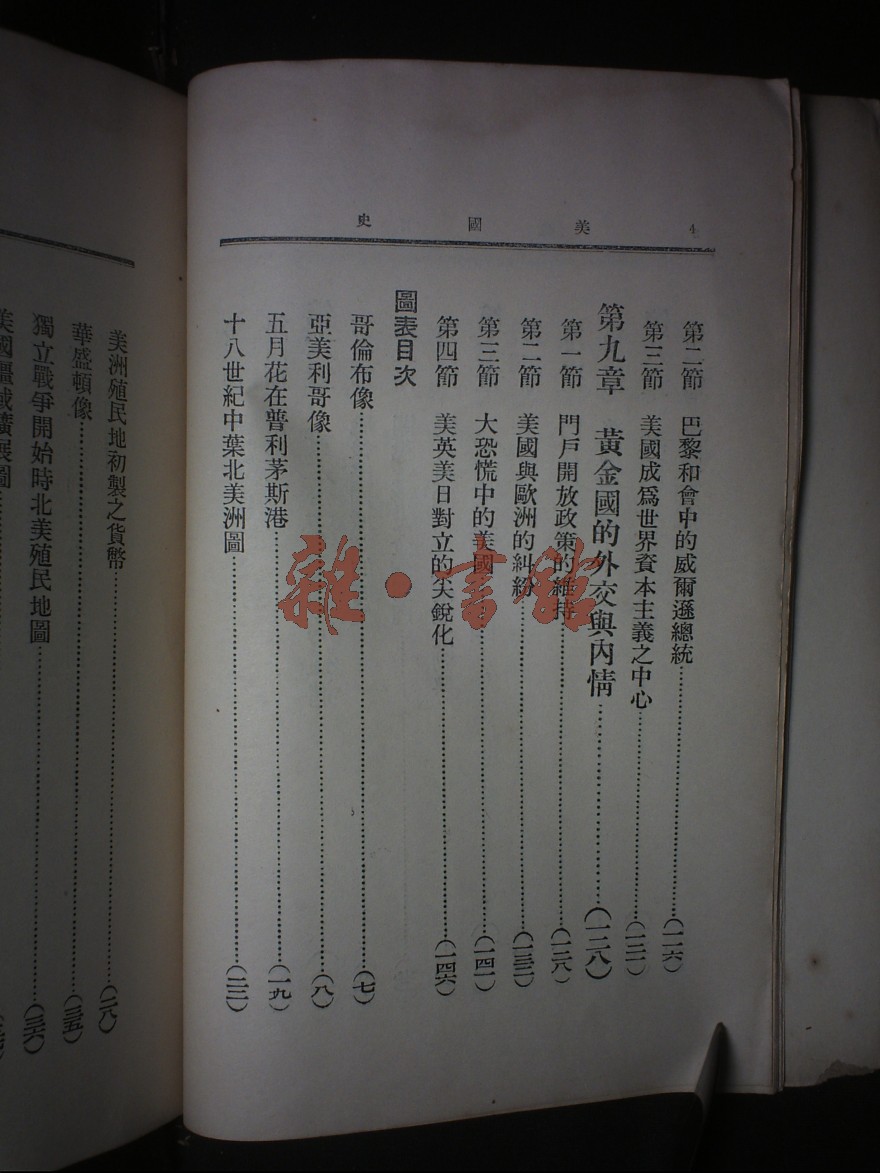 4 美國史
第二節 巴黎和會中的威爾遜總統……(一一六)
第三節 美國成爲世界資本主義之中心……(一二一)
第九章 黃金國的外交與內情……(一二八)
第一節 門戶開放政策的維持……(一二八)
第二節 美國與歐洲的糾紛……(一三二)
第三節 大恐慌中的美國……(一四一)
第四節 美英美日對立的尖銳化……(一四六)
圖表目次
哥倫布像……(七)
亞美利哥像……(八)
五月花在普利茅斯港……(一九)
十八世紀中葉北美洲圖……(二二)
美洲殖民地初製之貨幣……(二八)
華盛頓像……(三五)
獨立戰爭開始時北美殖民地圖……(三六)
美國疆域擴展圖……
雜·書館